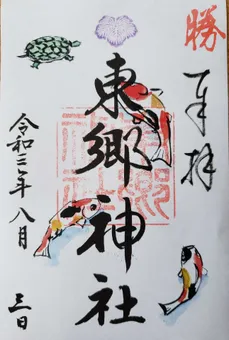 勝
奉拝
東郷神社
令和三年八月
三日